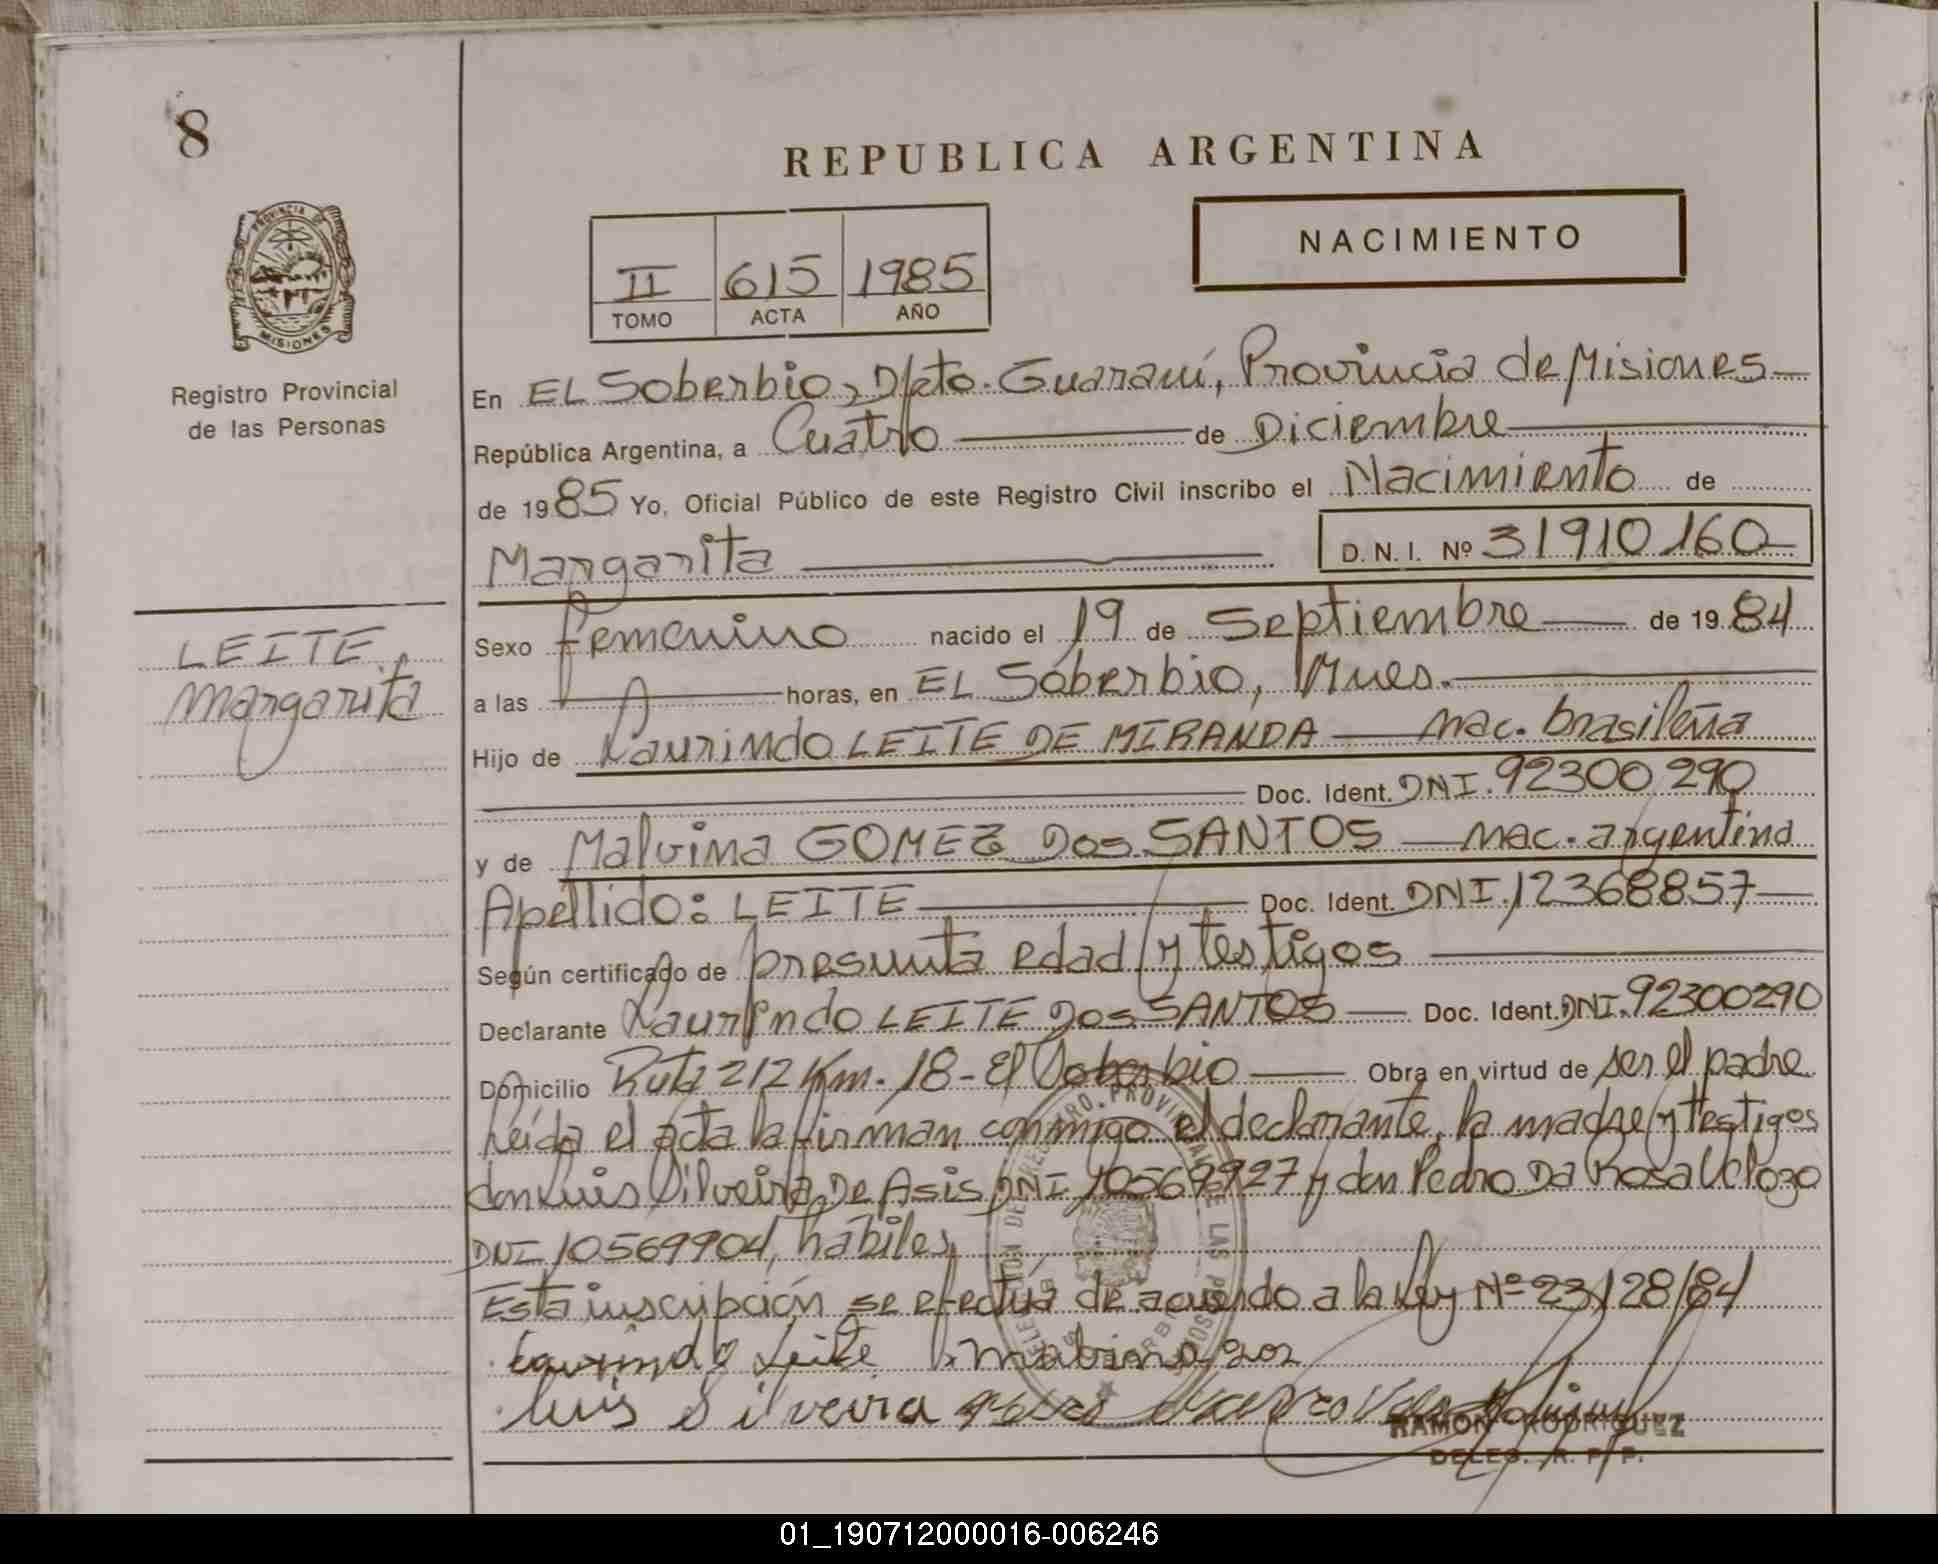 8
REPUBLICA ARGENTINA
PROVINCIA DE
MISIONES
NACIMIENTO
II 615 1985
TOMO ACTA AÑO
Registro Provincial
de las Personas
En EL Soberbio, Dpto. Guaraní, Provincia de Misiones
República Argentina, a Cuatro de Diciembre
de 1985 Yo, Oficial Público de este Registro Civil inscribo el Nacimiento de
Margarita D. N. I. Nº 31910160
LEITE
Margarita
Sexo femenino nacido el 19 de Septiembre de 1984
a las horas, en EL Soberbio, Mnes.
Hijo de Laurindo LEITE DE MIRANDA nac. brasileña
Doc. Ident. DNI. 92300290
y de Malvina GOMEZ Dos SANTOS nac. argentina
Apellido: LEITE Doc. Ident. DNI. 12368857
Según certificado de presunta edad y testigos
Declarante Laurindo LEITE Dos SANTOS Doc. Ident. DNI. 92300290
Domicilio Ruta 212 Km. 18 - El Soberbio Obra en virtud de ser el padre
Leída el acta la firman conmigo el declarante, la madre y testigos
don Luis Silveira De Asis DNI 10569927 y don Pedro Da Rosa Velozo
DNI 10569904, hábiles
Esta inscripción se efectúa de acuerdo a la Ley Nº 23128/84
Laurindo Leite
Luis Silveira
RAMON RODRIGUEZ
DELEG. R. P. P.
01_190712000016-006246